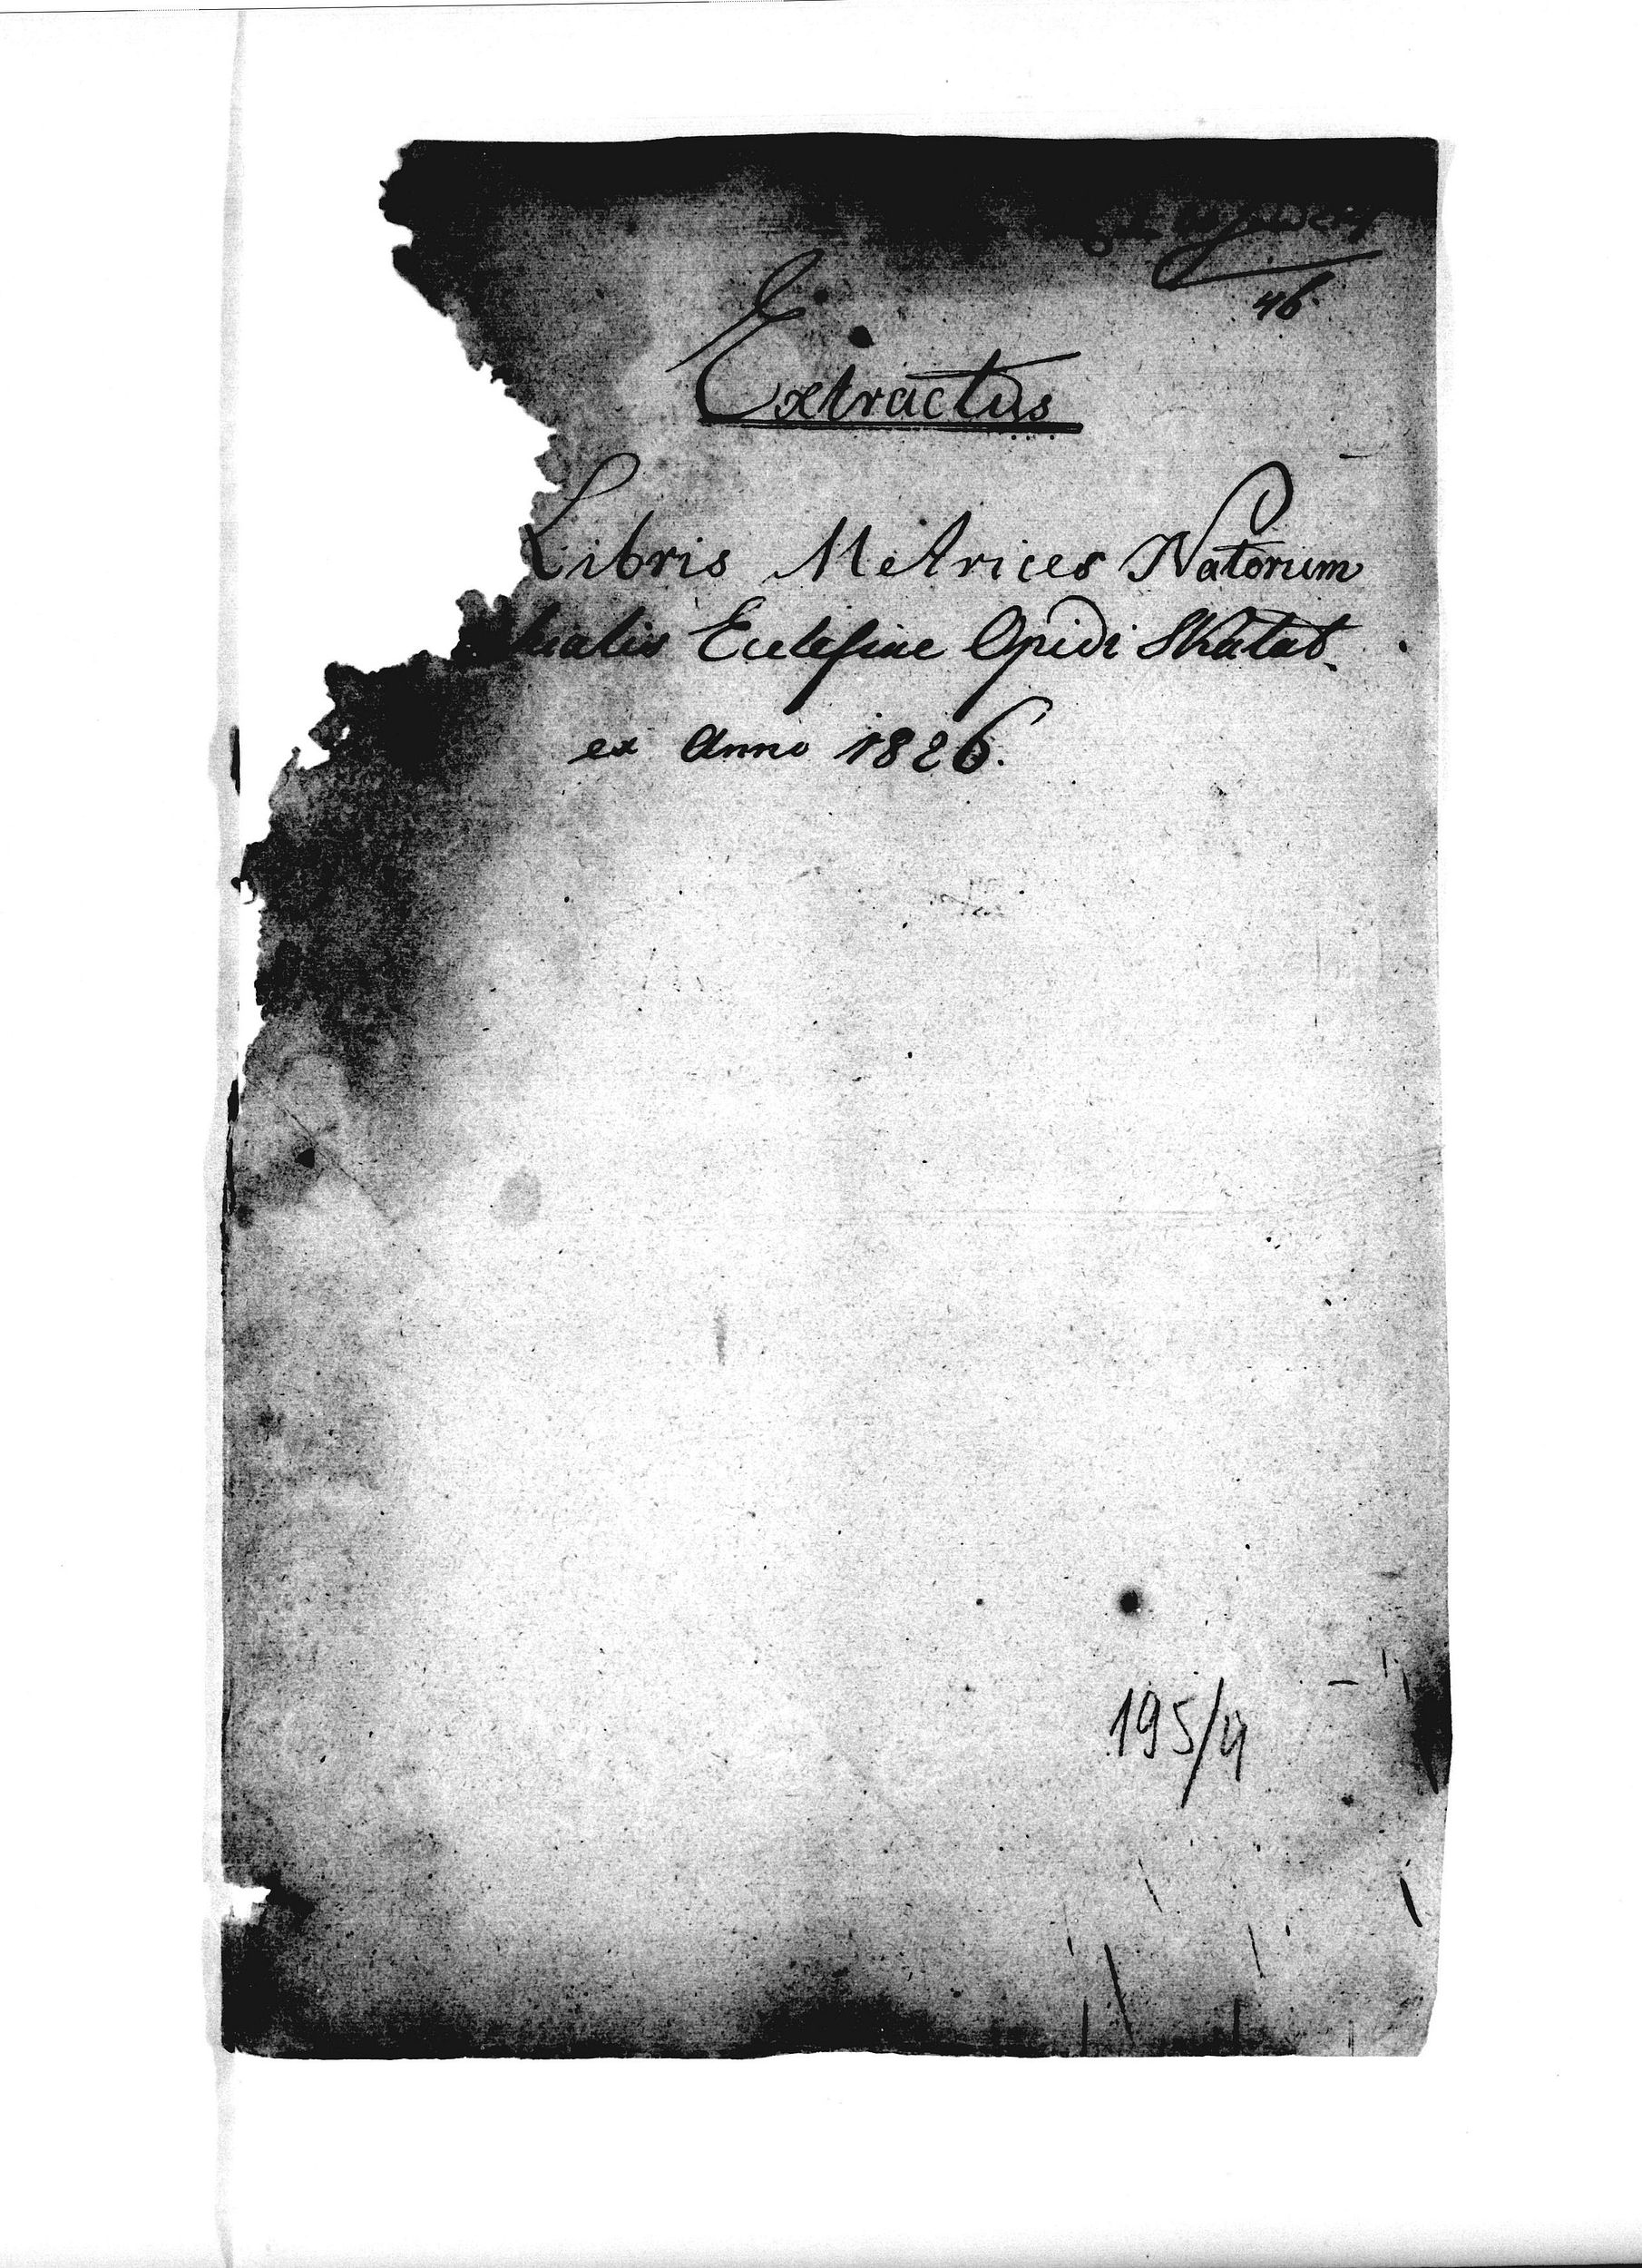 46.
Extractus
Libris Metrices Natorum
hialis Ecclesiae Opidi Skalat.
ex Anno 1826.
195/4